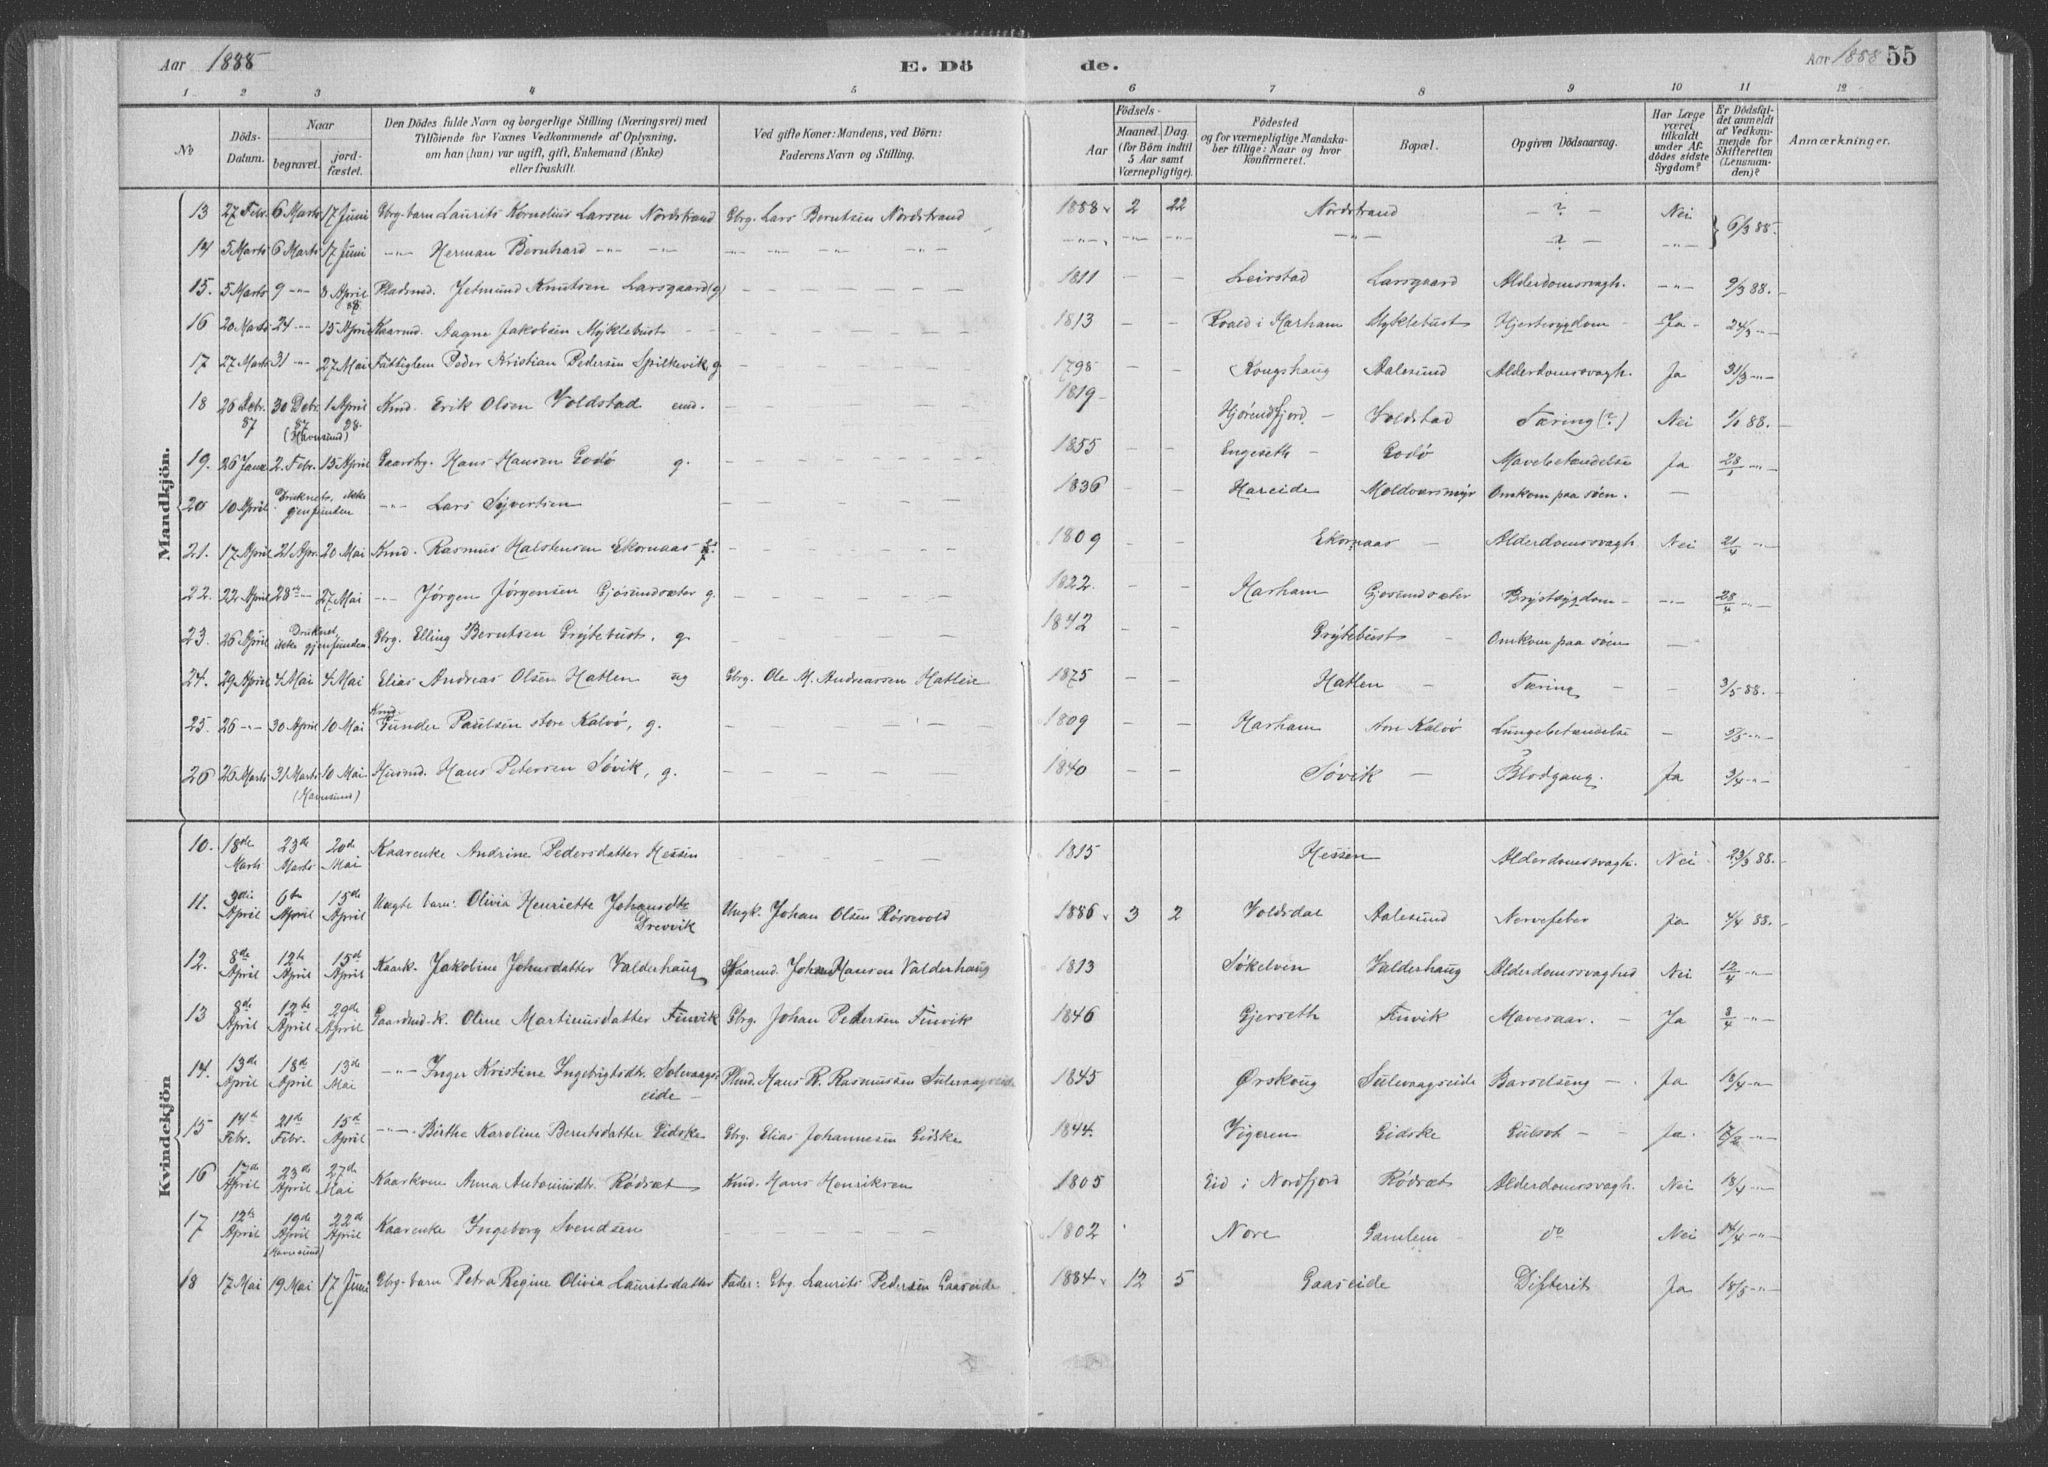 Aar 1888 E. Dö de. Aar 1888 55
1 2 3 4 5 6 7 8 9 10 11 12
No Döds-Datum. Naar begravet. jord-fæstet. Den Dödes fulde Navn og borgerlige Stilling (Næringsvei) med Tilföiende for Voxnes Vedkommende af Oplysning, om han (hun) var ugift, gift, Enkemand (Enke) eller fraskilt. Ved gifte Koner: Mandens, ved Börn: Faderens Navn og Stilling. Födsels- Aar Maaned. Dag. (for Börn indtil 5 Aar samt Værnepligtige). Födested og for værnepligtige Mandska-ber tillige: Naar og hvor Konfirmeret. Bopæl. Opgiven Dödsaarsag. Har Læge været tilkaldt under Af-dödes sidste Sygdom? Er Dödsfal-det anmeldt af Vedkom-mende for Skifteretten (Lensman-den)? Anmærkninger.
Mandkjön.
13 27 Febr. 6 Marts 17 Juni Gbrg. barn Laurits Kornelius Larsen Nordstrand Gbrg. Lars Berntsen Nordstrand 1888 2 22 Nordstrand — ? — Nei 6/3 88.
14 5 Marts 6 Marts 17 Juni -"- Herman Bernhard -"- -"- — " — " — " -"- -"- -"- -"- — ? — -"-
15. 5 Marts 9 -"- 8 April 88. Pladsmd. Jetmund Knutsen Larsgaard (g) 1811 — — Leirstad Larsgaard Alderdomssvagh. -"- 9/3 88.
16 20 Marts 24 -"- 15 April Kaarmd. Aagne Jakobsen Myklebust — 1813 — — Roald i Harham Myklebust Hjertesygdom — Ja 24/3 -"-
17 27 Marts 31 -"- 27 Mai Fattiglem Peder Kristian Pedersen Spilkevik, g. 1798 — — Kongshaug Aalesund Alderdomssvagh. Ja 31/3 -"-
18 26 Debr. 87 30 Debr. 87 (Havnsund) 1 April 88. Kmd. Erik Olsen Voldstad emd. 1819 Hjørendfjord — Voldstad Tæring (?) Nei 1/1 88.
19. 26 Janr 2. Febr. 15 April Gaardbrg. Hans Hansen Godø g. 1855 — — Engeseth — Godø Mavebetændelse Ja 28/1 -"-
20 10 April Druknet, ikke gjenfunden -"- Lars Syvertsen 1836 — — Hareide Moldværsmyr Omkom paa søen. —
21. 17 April 21 Apr. 20 Mai Kmd. Rasmus Halstensen Ekornaas 1809 — — Ekornaas — Alderdomssvagh Nei 21/4 -"-
22. 22 April 28 -"- 27 Mai -"- Jørgen Jørgensen Gjøsundsæter g. 1822. — — Harham Gjøsundsæter Brystsygdom — -"- 28/4 -"-
23. 26 April Druknet, ikke gjenfunden. Gbrg. Elling Berntsen Grytebust, g. 1842 — — Grytebust — Omkom paa søen —
24. 29 April 4 Mai 4 Mai Elias Andreas Olsen Hatlen ug Gbrg. Ole M. Andreassen Hatlen 1875 — — Hatlen — Tæring — — 3/5 88.
25. 26 -"- 30 April 10 Mai Kmd. Gunder Paulsen store Kalvø, g. 1809 — — Harham store Kalvø Lungebetændelse — 5/5 -"-
26 26 Marts 31 Marts (Havnsund) 10 Mai Husmd. Hans Petersen Søvik, g. 1840 — — Søvik — Blodgang. Ja 3/4 -"-
Kvindekjön
10. 18de Marts 23de Marts 20de Mai Kaarenke Andrine Pedersdatter Hessen — 1815 Hessen Alderdomssvagh. Nei 23/3 88.
11. 3die April 6te April 15de April Uægte barn: Olivia Henriette Johansdtr Drevvik Ungk. Johan Olsen Rørsvold 1886 3 2 Voldsdal Aalesund Nervefeber Ja 4/4 88.
12. 8de April 12te April 15de April Kaark. Jakobine Johnsdatter Valderhaug Kaarmd. Johan Hansen Valderhaug 1813 Søkelven Valderhaug Alderdomssvaghed Nei 12/4 -"-
13 8de April 12te April 29de April Gaardmd.k. Oline Martinusdatter Finvik Gbrg. Johan Pedersen Finvik 1846 Gjerseth Finvik Mavesaar. — Ja 8/4 -"-
14. 13de April 18de April 13de Mai -"- Inger Kristine Ingebrigtsdtr. Solvaags eide — Plmd. Hans R. Rasmussen Sulvaagseide 1845 Ørskoug Sulvaagseide Barselseng — Ja 18/4 -"-
15 14de Febr. 21de Febr. 15de April -"- Birthe Karoline Berntsdatter Gidske Gbrg. Elias Johannesen Gidske 1844. Vigeren Gidske Gulsot — Ja. 17/2 -"-
16 17de April 23de April 27de Mai Kaarkone Anna Antonimdtr. Rødsæt Kmd. Hans Henriksen 1805 Eid i Nordfjord Rødsæt Alderdomssvagh. Nei 18/4 -"-
17 12te April 19de April (Havnsund) 22de April Kaarenke Ingeborg Svendsen — 1802 Nore Gamlem do Nei 14/4 -"-
18 17 Mai 19 Mai 17 Juni Gbrg. barn Petra Regine Olivia Lauritsdatter Fader: Gbrg. Laurits Pedersen Gaaseide 1884 12 5 Gaaseide Difterit Ja 18/5 -"-